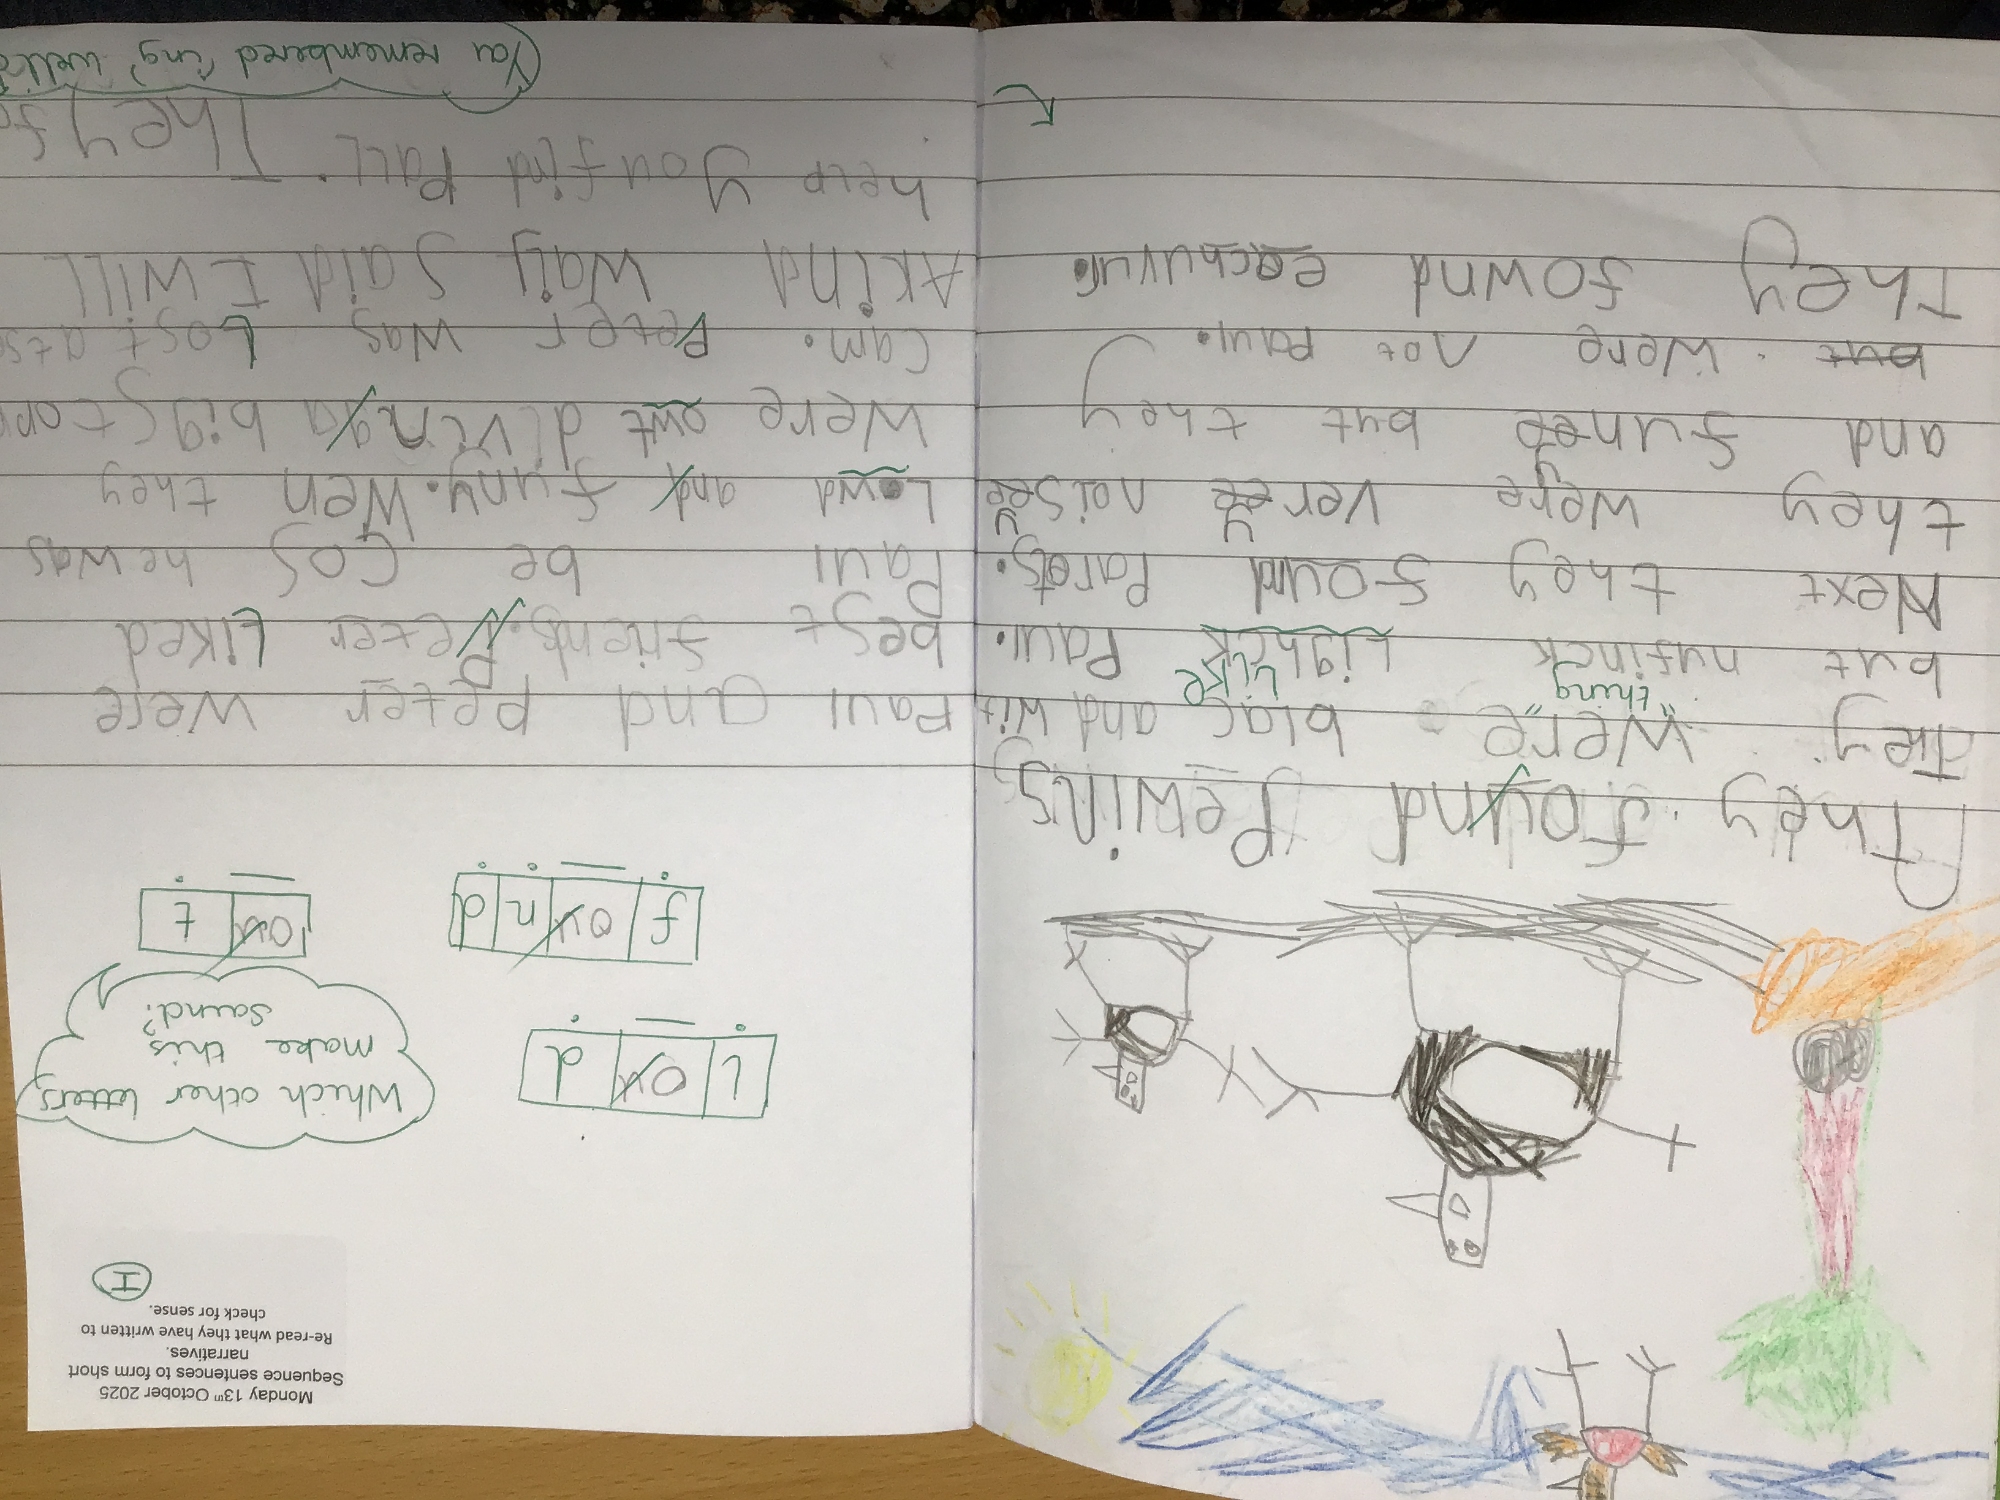 They found Pewins
They were blac and wit
"thing" Like
but nufinck Lighck Paul.
Next they found Parots.
y y
they were veree noisee
and funee but they
but were not Paul.
They fownd eachuvur.
Monday 13th October 2025
Sequence sentences to form short
narratives.
Re-read what they have written to
check for sense.
I
l ou d
Which other letters
make this
sound?
f ou n d
ou t
Paul and peter were
best friends. Peter Liked
Paul be cos he was
Lowd and funy. Wen they
were owt diving a big
cam. Peter was Lost
A kind waly Said I will
help you find Pall. They
You remembered 'ing' well